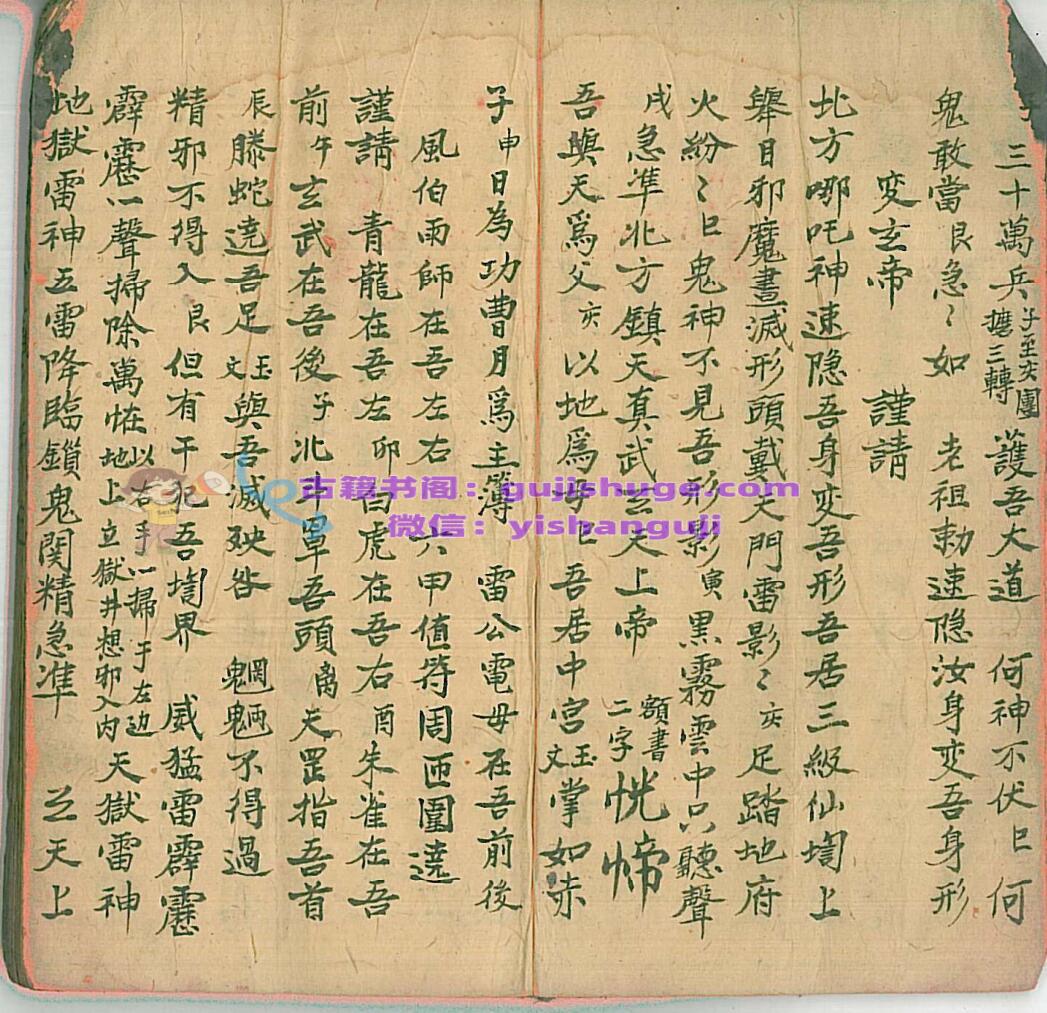 三十萬兵 子至亥團摝三轉 護吾大道 何神不伏 巳 何
鬼敢當 艮 急〻如 老祖勅速隐汝身变吾身形
变玄帝 謹請
北方哪吒神速隐吾身变吾形吾居三級仙墹上
舉目邪魔盡滅形頭戴天門雷影〻 亥 足踏地府
火紛〻 巳 鬼神不見吾形影 寅 黒霧雲中只聽聲
戌 急準北方鎮天真武玄天上帝 額書二字
吾與天爲父 亥 以地爲母 巳 吾居中宮 玉文 掌如赤
子 申 日為功曹月爲主簿 雷公電母在吾前後
風伯雨師在吾左右 六甲值符周匝圍遶
謹請 青龍在吾左 卯 白虎在吾右 酉 朱雀在吾
前 午 玄武在吾後 子 北斗罩吾頭 离 天罡指吾首
辰 滕蛇遶吾足 玉文 與吾滅殃咎 魍魎不得過
精邪不得入 艮 但有干犯吾墹界 威猛雷霹靂
霹靂一聲掃除萬怪 以右手一掃于左边地上立獄井想邪入内 天獄雷神
地獄雷神五雷降臨鎖鬼関精急準 玄天上
古籍书阁：gujishuge.com
微信：yishanguji